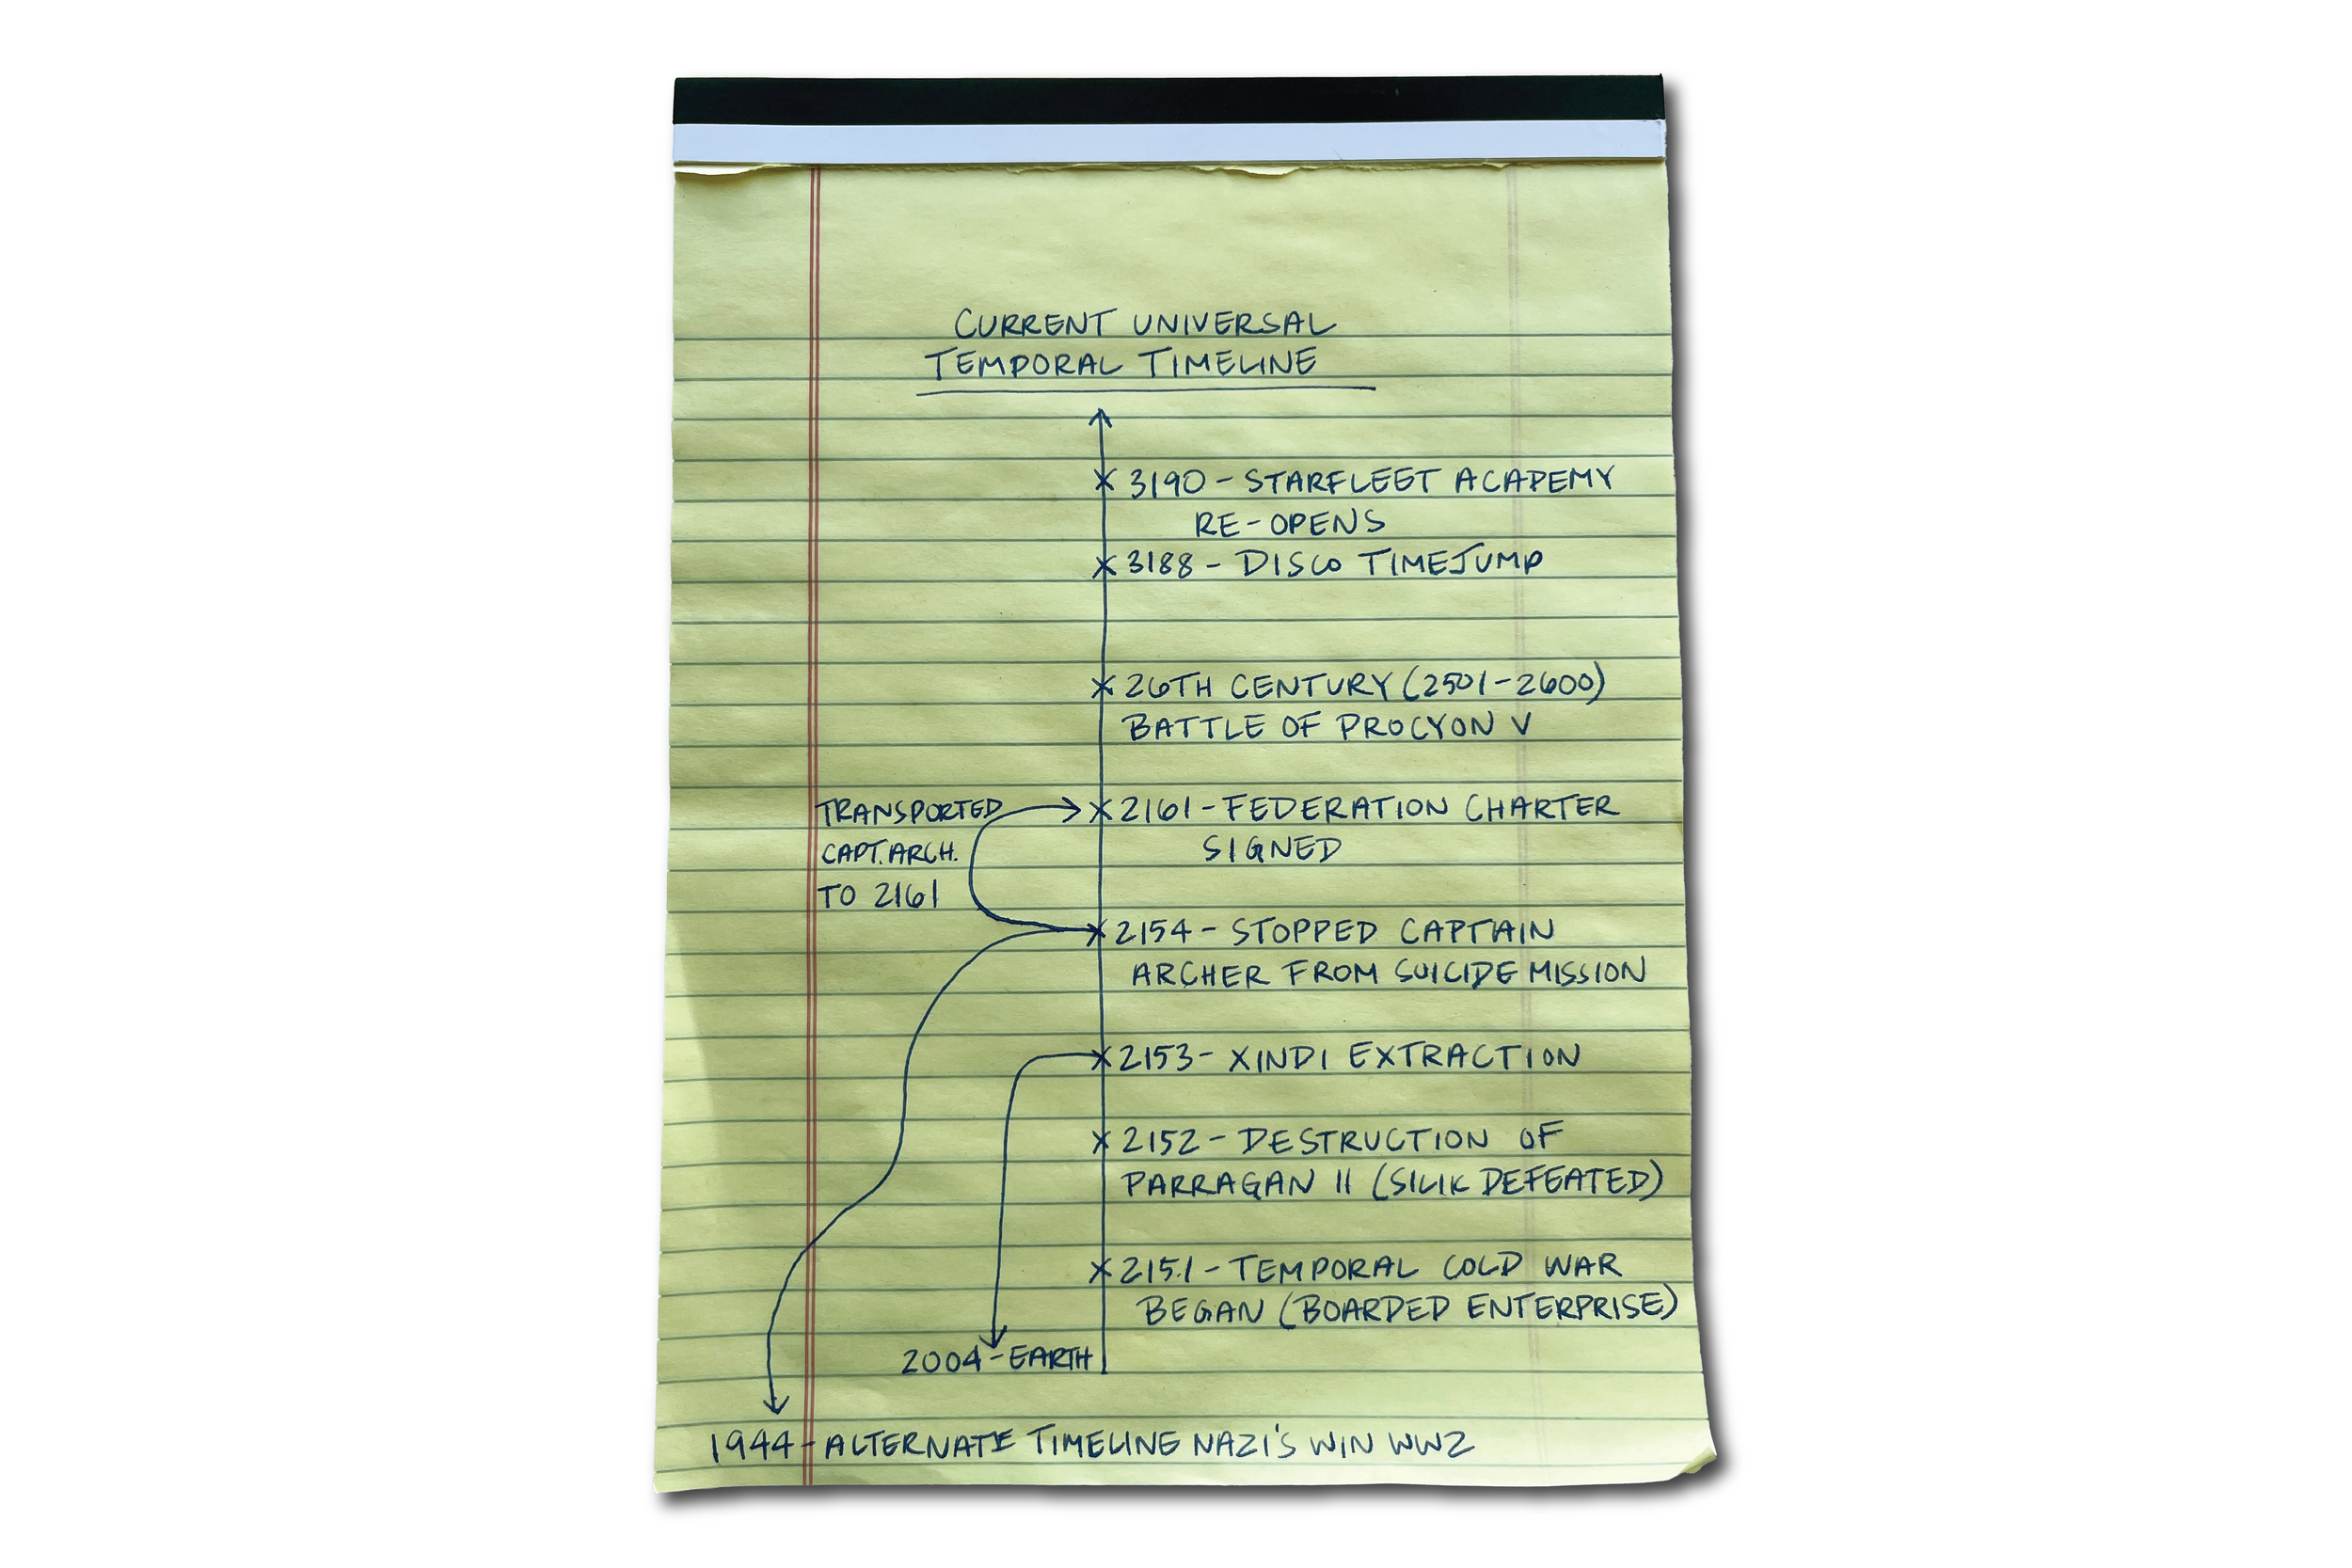 CURRENT UNIVERSAL
TEMPORAL TIMELINE
3190 - STARFLEET ACADEMY
RE-OPENS
3188 - DISCO TIMEJUMP
26TH CENTURY (2501-2600)
BATTLE OF PROCYON V
TRANSPORTED
CAPT. ARCH.
TO 2161
2161 - FEDERATION CHARTER
SIGNED
2154 - STOPPED CAPTAIN
ARCHER FROM SUICIDE MISSION
2153 - XINDI EXTRACTION
2152 - DESTRUCTION OF
PARRAGAN II (SILIK DEFEATED)
2151 - TEMPORAL COLD WAR
BEGAN (BOARDED ENTERPRISE)
2004 - EARTH
1944 - ALTERNATE TIMELINE NAZI'S WIN WW2